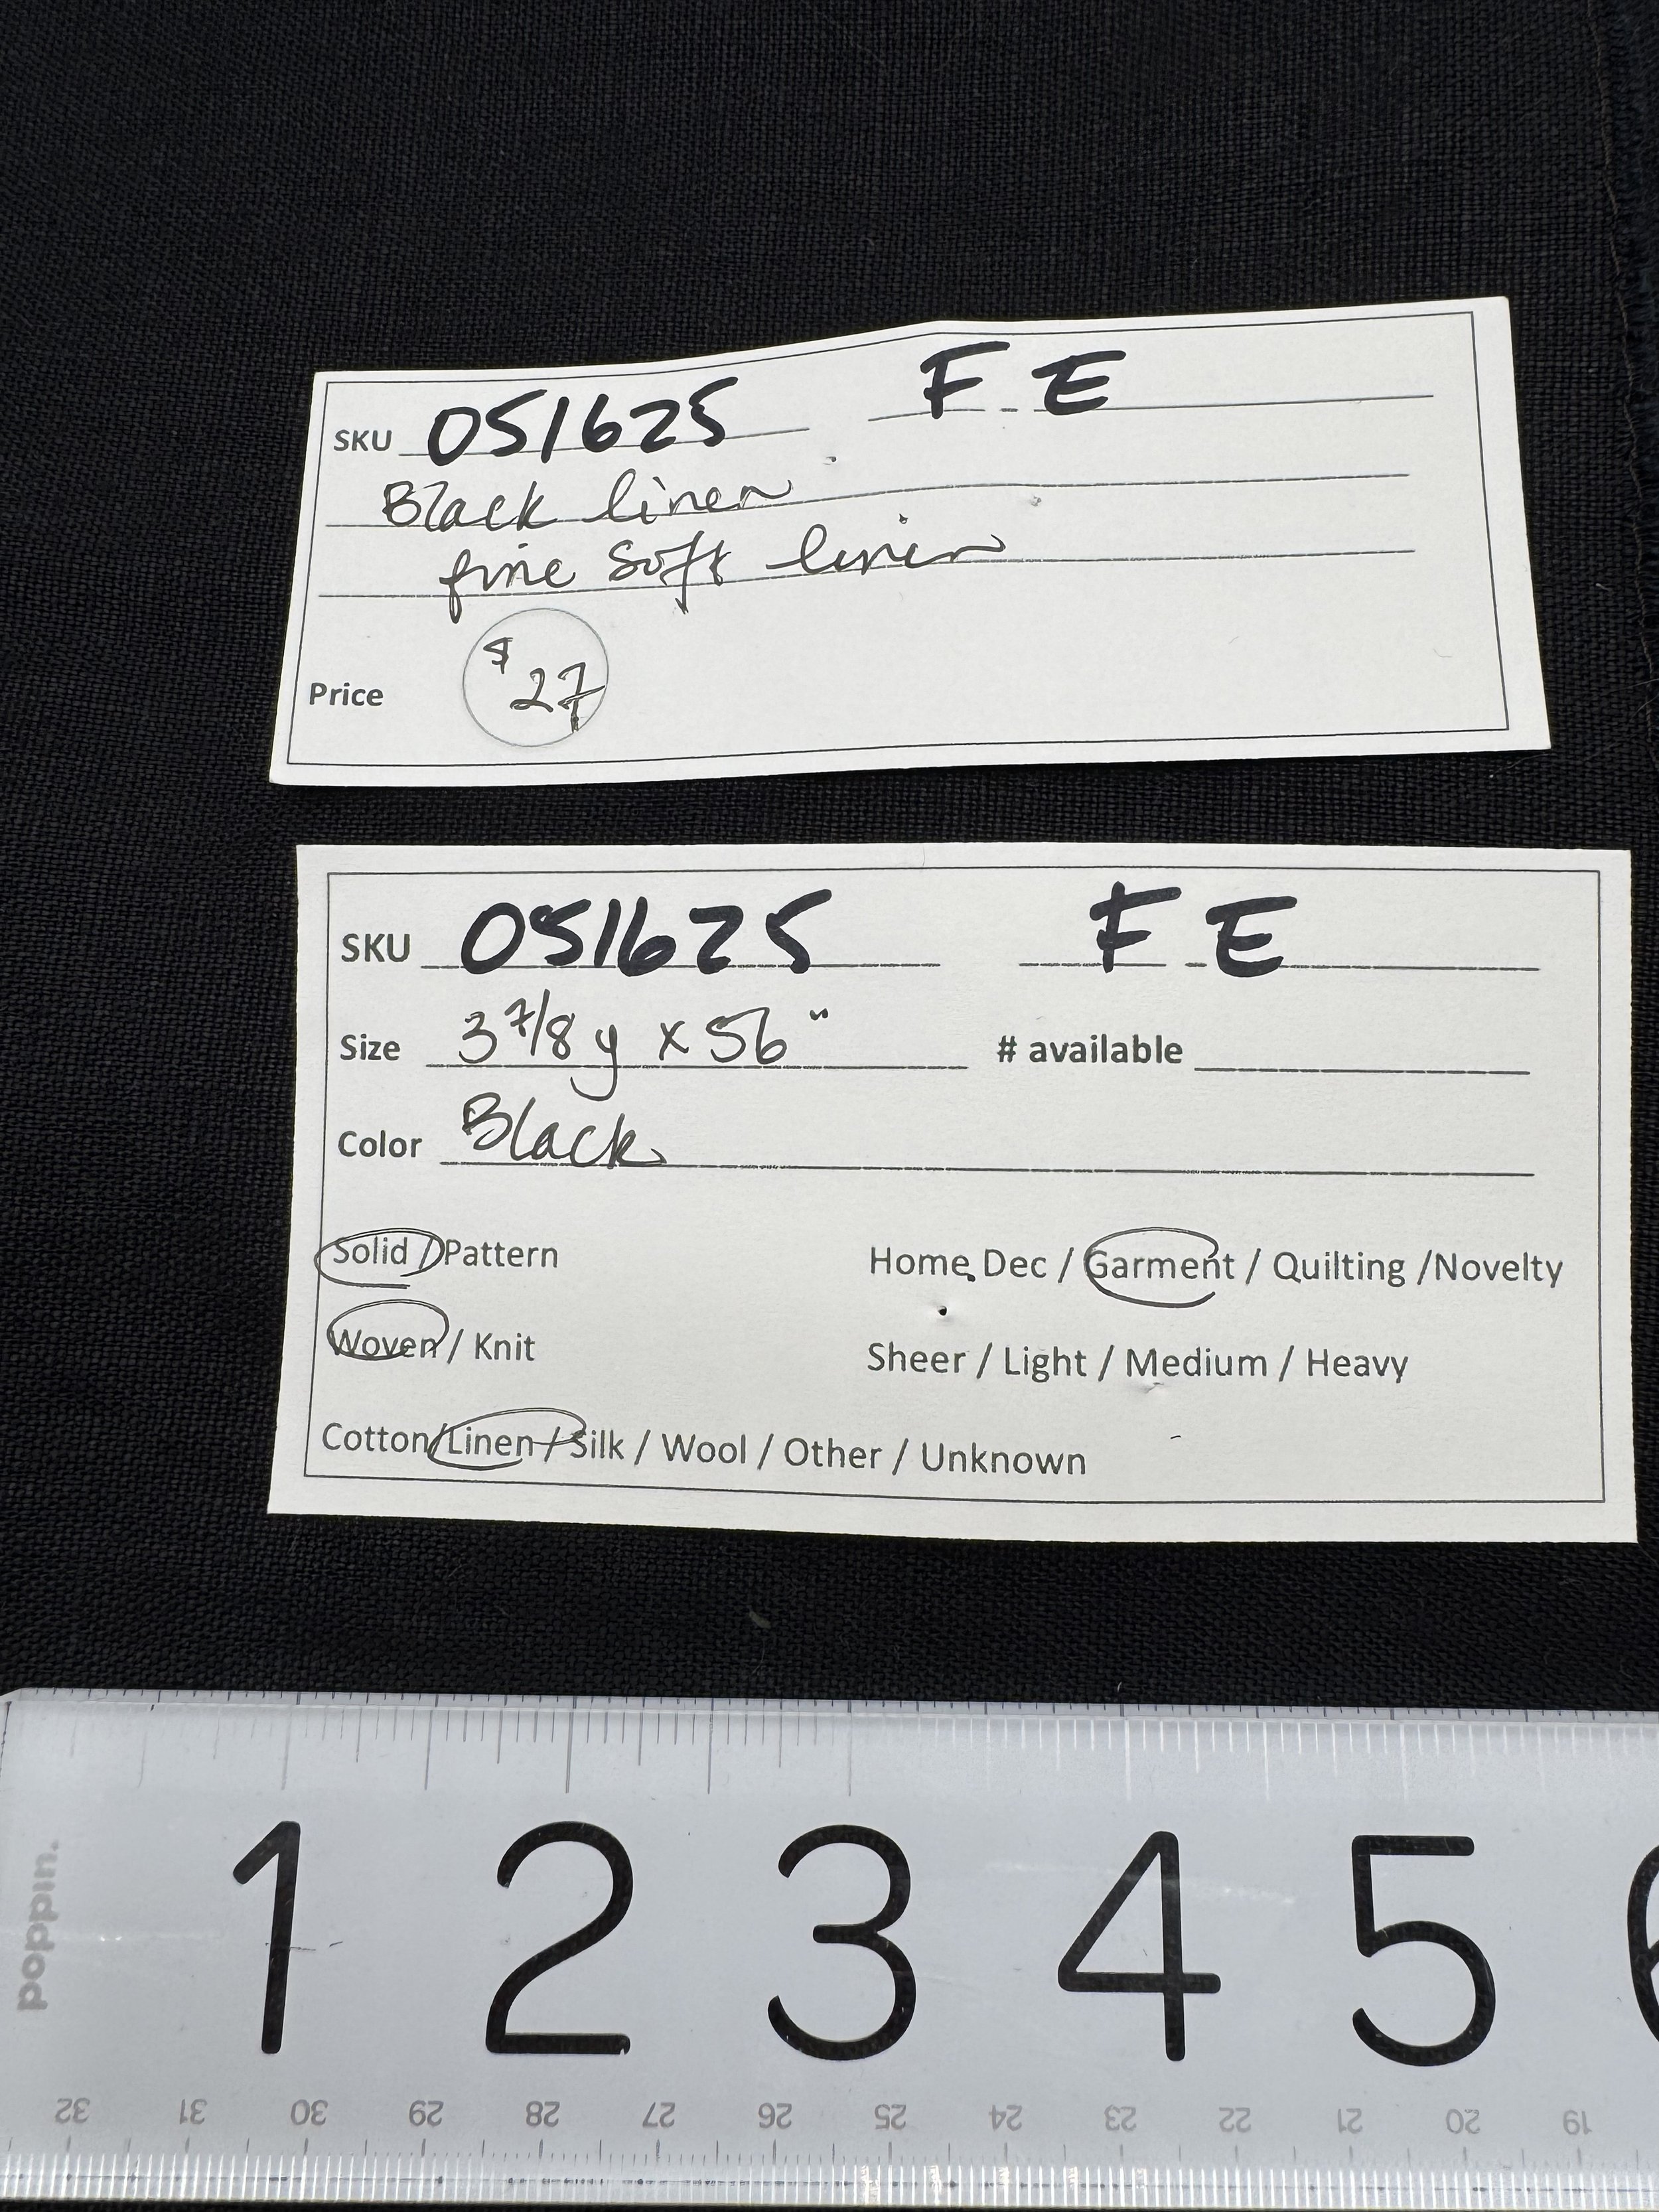 SKU 051625 F E
Black linen
fine soft linen
Price $27
SKU 051625 F E
Size 3 7/8 y x 56" # available
Color Black
Solid / Pattern Home Dec / Garment / Quilting /Novelty
Woven / Knit Sheer / Light / Medium / Heavy
Cotton/Linen / Silk / Wool / Other / Unknown
1 2 3 4 5 6
poppin.
32 31 30 29 28 27 26 25 24 23 22 21 20 19